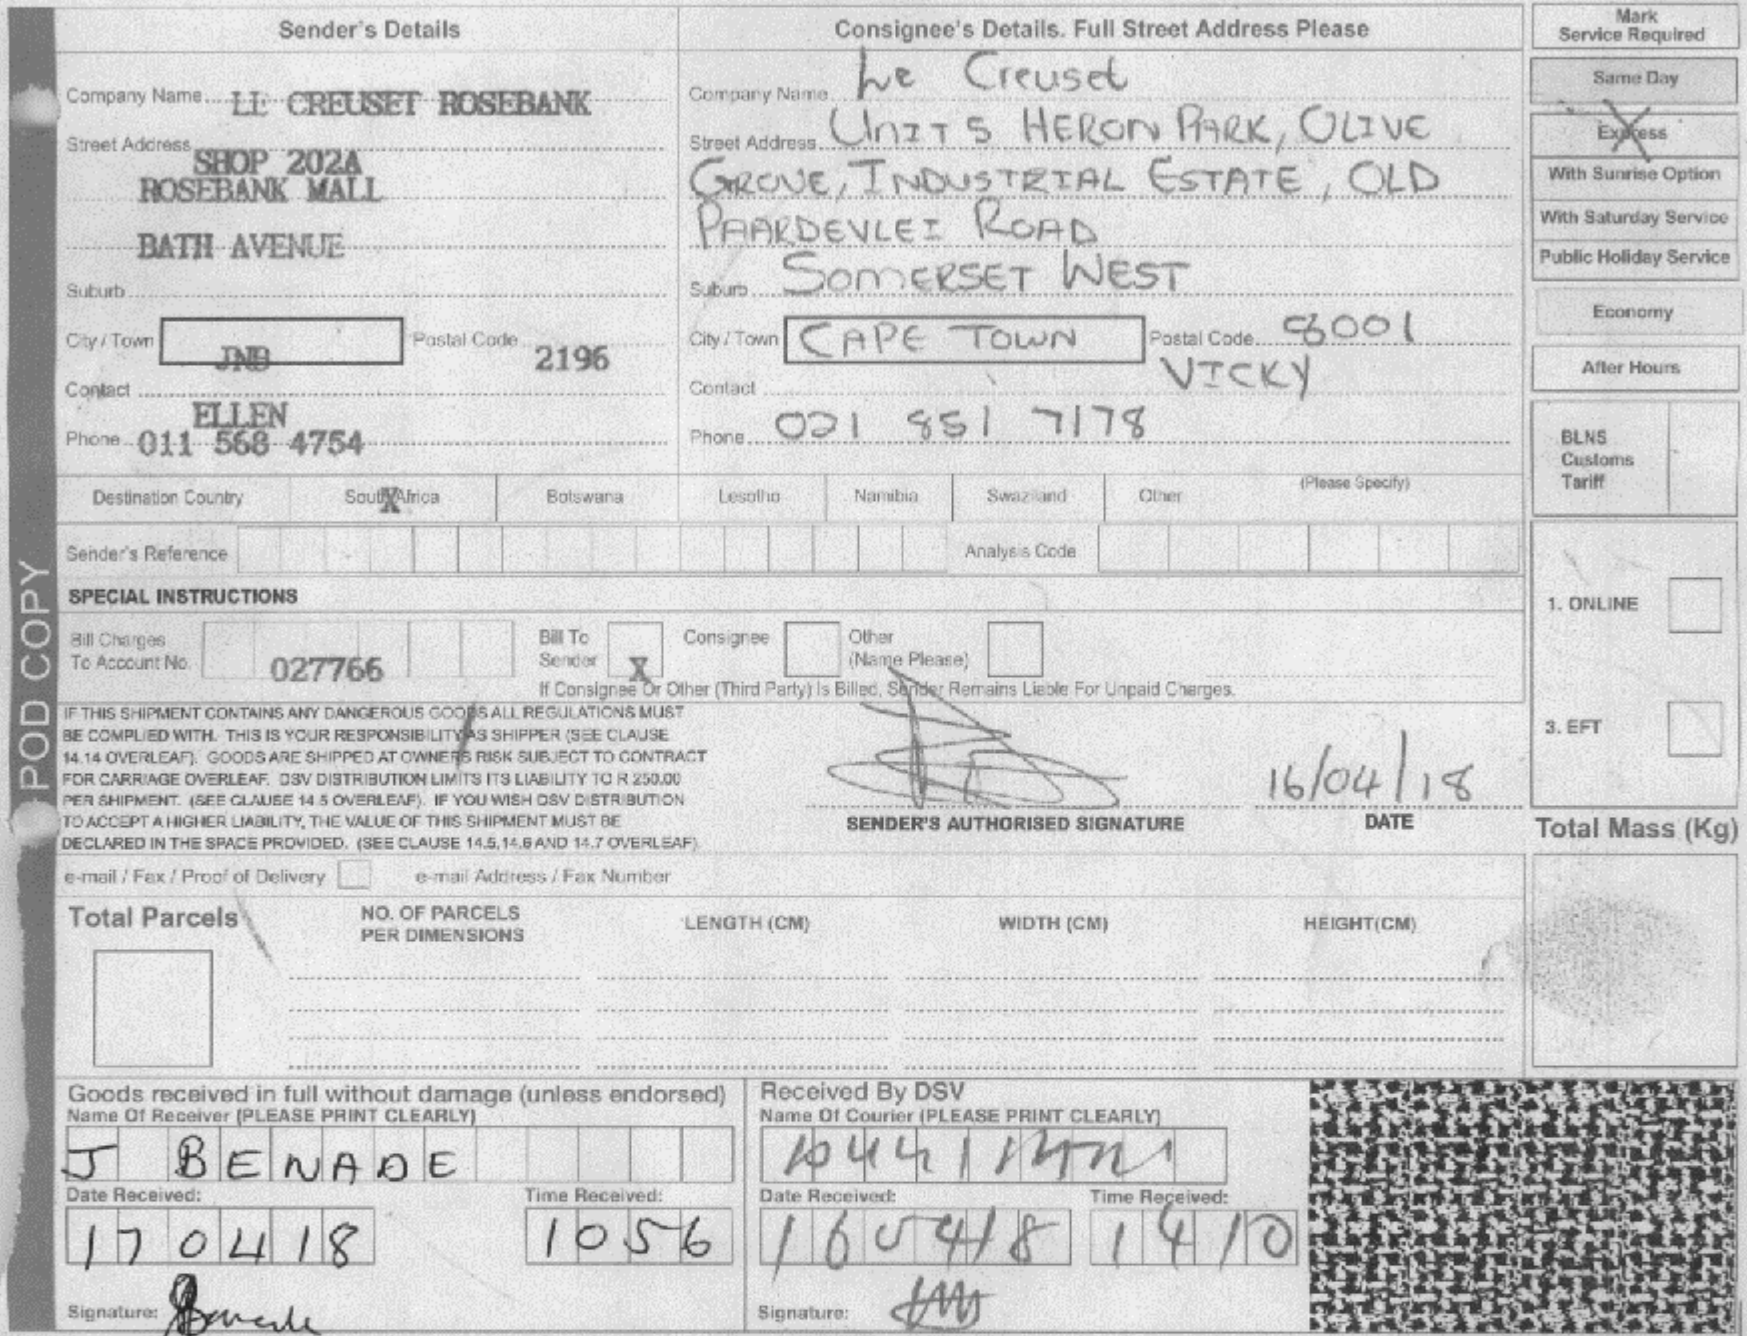 Sender's Details
Consignee's Details. Full Street Address Please
Mark
Service Required
Company Name LE CREUSET ROSEBANK
Street Address SHOP 202A
ROSEBANK MALL
BATH AVENUE
Suburb
City / Town JNB Postal Code 2196
Contact ELLEN
Phone 011 568 4754
Company Name Le Creuset
Street Address UNIT 5 HERON PARK, OLIVE
GROVE, INDUSTRIAL ESTATE, OLD
PAARDEVLEI ROAD
Suburb SOMERSET WEST
City / Town CAPE TOWN Postal Code 8001
Contact VICKY
Phone 021 851 7178
Same Day
Express
With Sunrise Option
With Saturday Service
Public Holiday Service
Economy
After Hours
BLNS
Customs
Tariff
Destination Country South Africa X Botswana Lesotho Namibia Swaziland Other (Please Specify)
Sender's Reference Analysis Code
SPECIAL INSTRUCTIONS
Bill Charges
To Account No. 027766
Bill To
Sender X
Consignee
Other
(Name Please)
If Consignee Or Other (Third Party) Is Billed, Sender Remains Liable For Unpaid Charges.
1. ONLINE
3. EFT
IF THIS SHIPMENT CONTAINS ANY DANGEROUS GOODS ALL REGULATIONS MUST
BE COMPLIED WITH. THIS IS YOUR RESPONSIBILITY AS SHIPPER (SEE CLAUSE
14.14 OVERLEAF). GOODS ARE SHIPPED AT OWNERS RISK SUBJECT TO CONTRACT
FOR CARRIAGE OVERLEAF. DSV DISTRIBUTION LIMITS ITS LIABILITY TO R 250.00
PER SHIPMENT. (SEE CLAUSE 14.5 OVERLEAF). IF YOU WISH DSV DISTRIBUTION
TO ACCEPT A HIGHER LIABILITY, THE VALUE OF THIS SHIPMENT MUST BE
DECLARED IN THE SPACE PROVIDED. (SEE CLAUSE 14.5,14.6 AND 14.7 OVERLEAF)
SENDER'S AUTHORISED SIGNATURE
16/04/18
DATE
Total Mass (Kg)
e-mail / Fax / Proof of Delivery e-mail Address / Fax Number
Total Parcels
NO. OF PARCELS
PER DIMENSIONS
LENGTH (CM)
WIDTH (CM)
HEIGHT(CM)
Goods received in full without damage (unless endorsed)
Name Of Receiver (PLEASE PRINT CLEARLY)
J BENADE
Date Received: Time Received:
170418 1056
Signature:
Received By DSV
Name Of Courier (PLEASE PRINT CLEARLY)
Date Received: Time Received:
160418 1410
Signature:
POD COPY